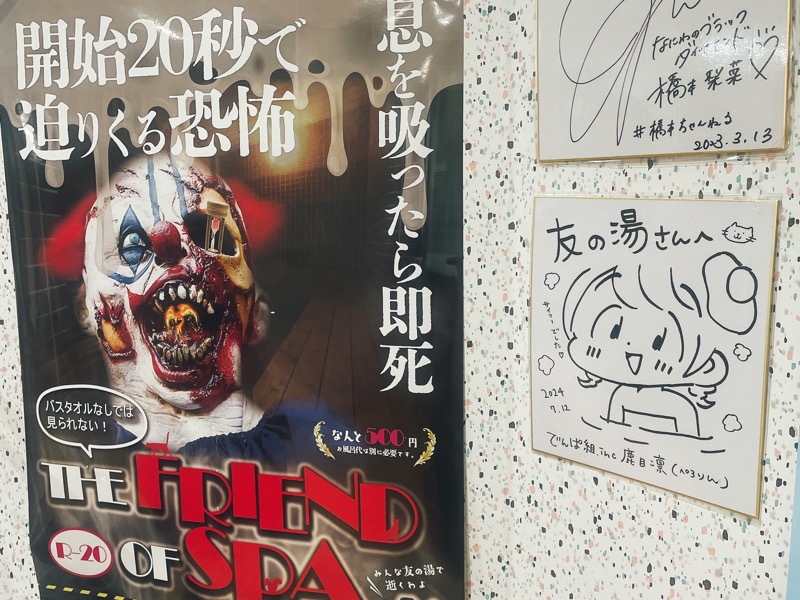 開始20秒で
迫りくる恐怖
息を吸ったら即死
バスタオルなしでは
見られない!
なんと500円
お風呂代は別に必要です。
THE FRIEND
R-20 OF SPA
みんな友の湯で
逝くわよ
なにわのブラック
ダイヤモンド
橋本 梨菜
#橋本ちゃんねる
2023.3.13
友の湯さんへ
サイコーでした♡
2024
7.12
でんぱ組.inc 鹿目凛(ぺろりん)